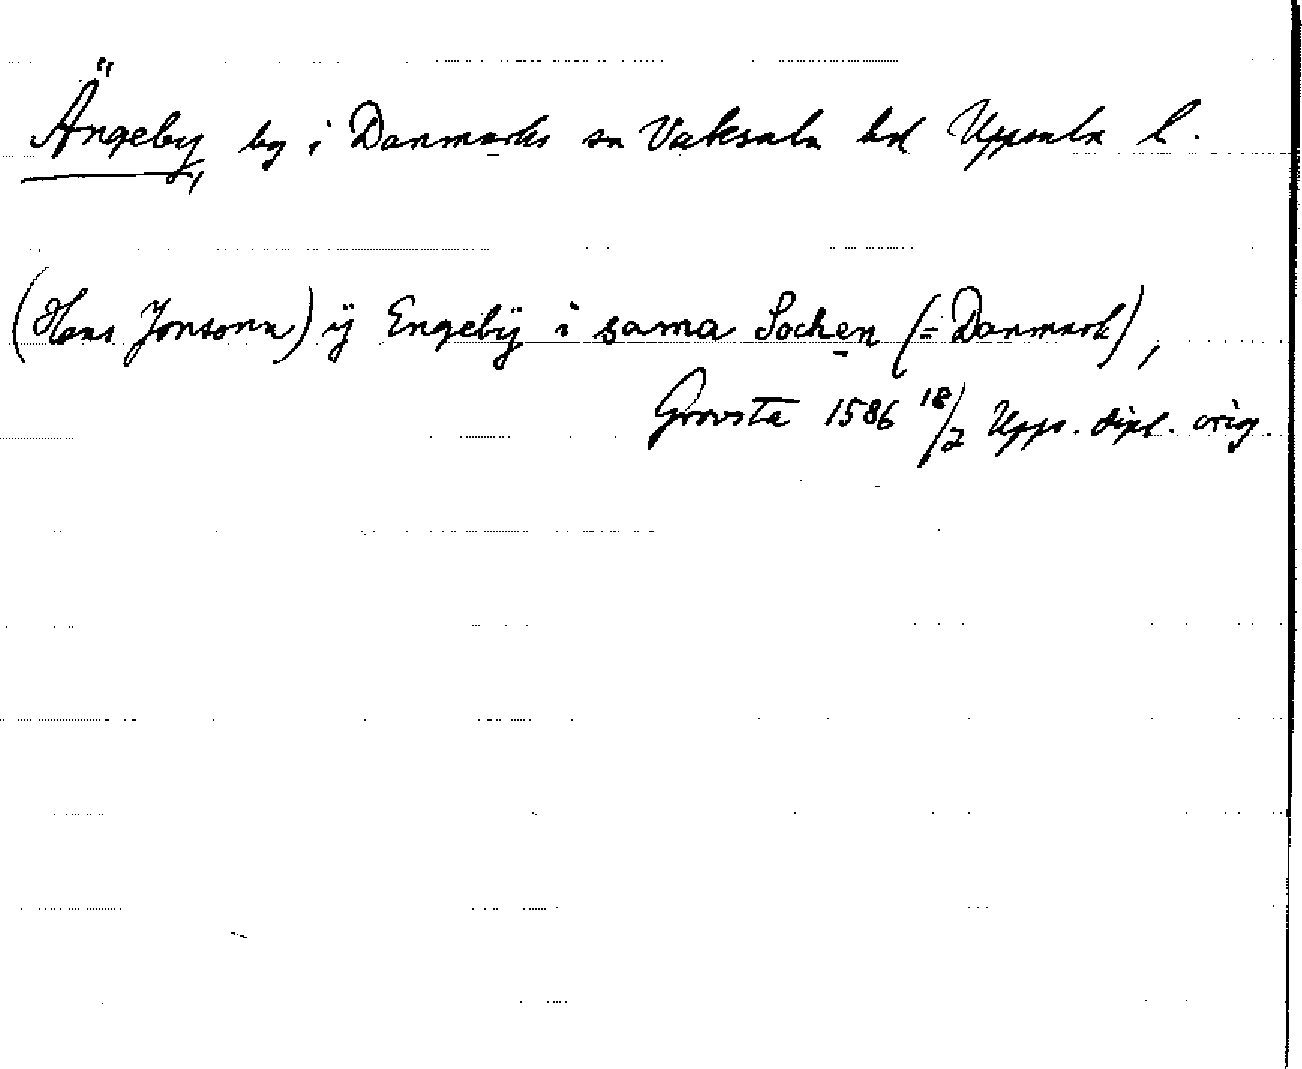 Ängeby, by i Danmarks sn Vaksala hd Uppsala l.
(Hans Jonsonn) ÿ Engebÿ i sama Sochen (= Danmark),
Grovsta 1586 18/7 Upps. dipl. orig.